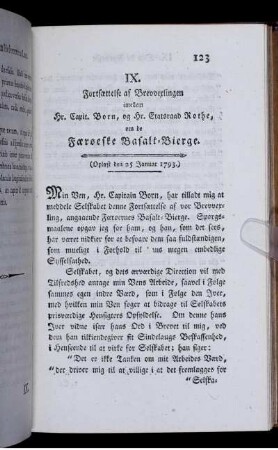 123
IX.
Fortsættelse af Brevvexlingen
imellem
Hr. Capit. Born, og Hr. Etatsraad Rothe,
om de
Færoeske Basalt-Bierge.
(Oplæst den 25 Januar 1793.)
Min Ven, Hr. Capitain Born, har tilladt mig at
meddele Selskabet denne Fortsættelse af vor Brevvex-
ling, angaaende Færoernes Basalt-Bierge. Spørgs-
maalene opgav jeg for ham, og han, som det sees,
har været nidkier for at besvare dem saa fuldstændigen,
som mueligt i Forhold til hans megen embedlige
Sysselsæthed.
Selskabet, og dets ærværdige Direction vil med
Tilfredshed antage min Vens Arbeide, saavel i Følge
sammes egen indre Værd, som i Følge den Iver,
med hvilken min Ven søger at bidrage til Selskabets
priisværdige Hensigters Opfyldelse. Om denne hans
Iver vidne især hans Ord i Brevet til mig, ved
dem han tilkiendegiver sit Sindelaugs Beskaffenhed,
i Henseende til at virke for Selskabet; han siger:
"Det er ikke Tanken om mit Arbeides Værd,
"der driver mig til at villige i at det fremlægges for
"Selska-
IX.